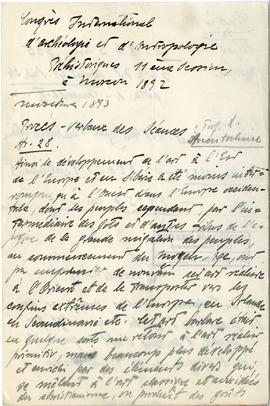 Congrès International
d'archéologie et d'Antropologie
Préhistoriques 11 ème Session,
à Moscou 1892
Moscou 1893
Procès-Verbaux des Séances Prof.
At. 28 Anoutchine
Ainsi le développement de l'art à l'Est
de l'Europe et en Sibérie a été moins
à l'Ouest dans l'Europe occiden-
tale, dont les peuples cependant par l'in-
termédiaire des Gots et d'autres tribus de l'é-
poque de la grande migration des peuples,
au commencement du moyen âge, ont
pu de nouveau cet art
à l'Orient et de le transporter vers les
confins extrêmes de l'Europe, en Irlande
en Scandinavie etc. Cet art barbare était
en quelque sorte un retour à l'art
primitif, mais beaucoup plus développé
et enrichi par des éléments divers qui
se mêlant à l'art classique et
du christianisme, ont produit des goûts